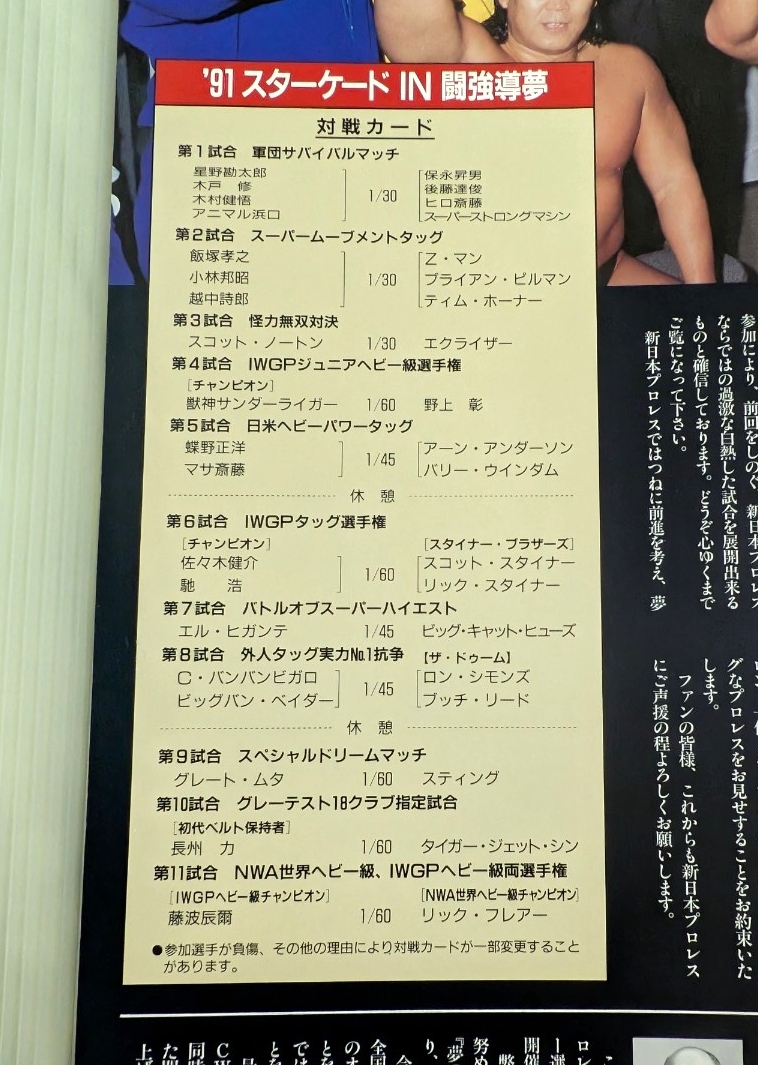 '91 スターケード IN 闘強導夢
対戦カード
第1試合 軍団サバイバルマッチ
星野勘太郎
木戸 修
木村健悟
アニマル浜口
1/30
保永昇男
後藤達俊
ヒロ斎藤
スーパーストロングマシン
第2試合 スーパームーブメントタッグ
飯塚孝之
小林邦昭
越中詩郎
1/30
Z・マン
ブライアン・ピルマン
ティム・ホーナー
第3試合 怪力無双対決
スコット・ノートン 1/30 エクライザー
第4試合 IWGPジュニアヘビー級選手権
[チャンピオン]
獣神サンダーライガー 1/60 野上 彰
第5試合 日米ヘビーパワータッグ
蝶野正洋
マサ斎藤
1/45
アーン・アンダーソン
バリー・ウインダム
休憩
第6試合 IWGPタッグ選手権
[チャンピオン]
佐々木健介
馳 浩
1/60
[スタイナー・ブラザーズ]
スコット・スタイナー
リック・スタイナー
第7試合 バトルオブスーパーハイエスト
エル・ヒガンテ 1/45 ビッグ・キャット・ヒューズ
第8試合 外人タッグ実力No.1抗争
C・バンバンビガロ
ビッグバン・ベイダー
1/45
[ザ・ドゥーム]
ロン・シモンズ
ブッチ・リード
休憩
第9試合 スペシャルドリームマッチ
グレート・ムタ 1/60 スティング
第10試合 グレーテスト18クラブ指定試合
[初代ベルト保持者]
長州 力 1/60 タイガー・ジェット・シン
第11試合 NWA世界ヘビー級、IWGPヘビー級両選手権
[IWGPヘビー級チャンピオン] [NWA世界ヘビー級チャンピオン]
藤波辰爾 1/60 リック・フレアー
●参加選手が負傷、その他の理由により対戦カードが一部変更すること
があります。
参加により、前回をしのぐ、新日本プロレス
ならではの過激な白熱した試合を展開出来る
ものと確信しております。どうぞ心ゆくまで
ご覧になって下さい。
新日本プロレスではつねに前進を考え、夢
グなプロレスをお見せすることをお約束いた
します。
ファンの皆様、これからも新日本プロレス
にご声援の程よろしくお願いします。